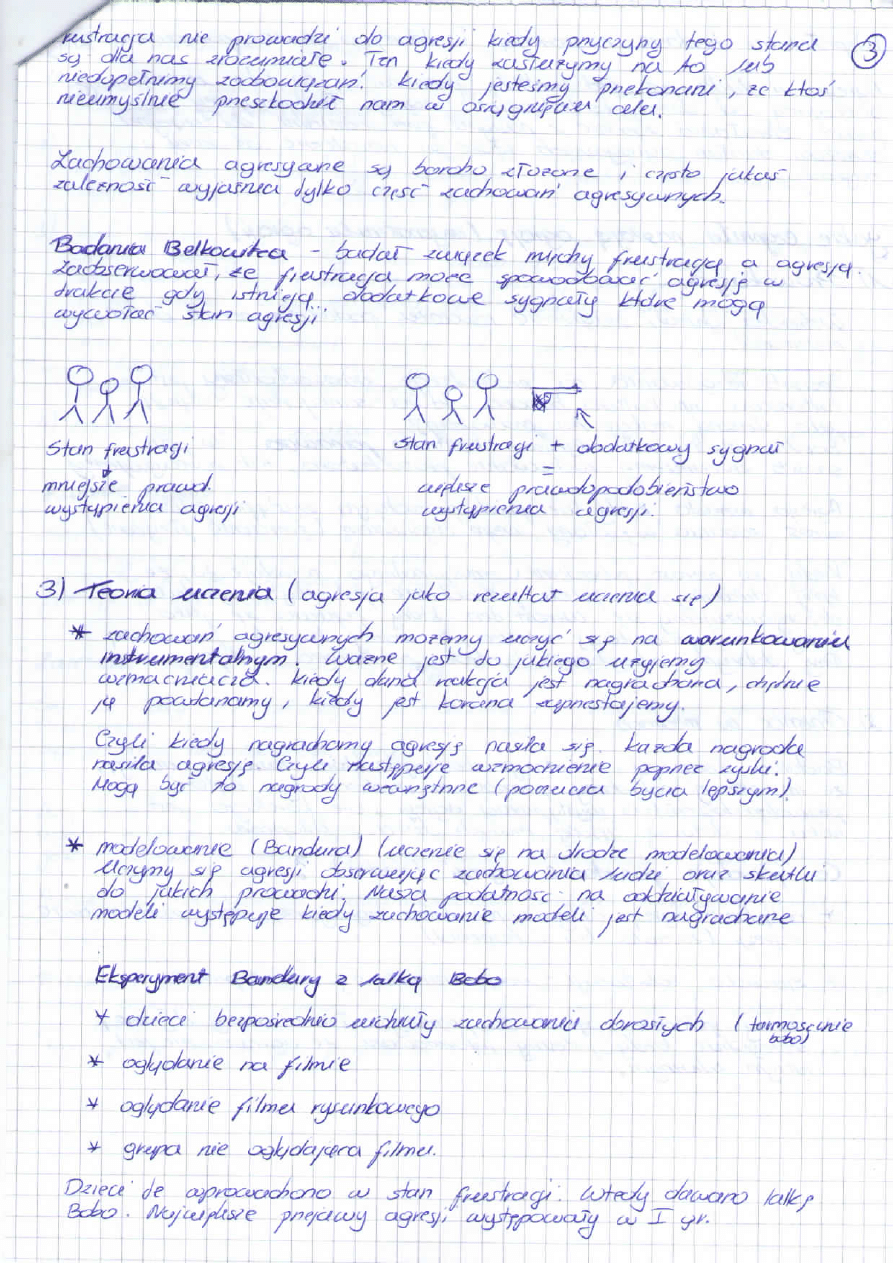 frustracja nie prowadzi do agresji kiedy przyczyny tego stanu
są dla nas zrozumiałe. Tzn kiedy zasłużymy na to lub
niedopełnimy zobowiązań. kiedy jesteśmy przekonani, że ktoś
nieumyślnie przeszkodził nam w osiągnięciu celu.
3
Zachowania agresywne są bardzo złożone i często jakaś
zależność wyjaśnia tylko część zachowań agresywnych.
Badania Belkowitza - badał związek między frustracją a agresją.
Zaobserwował, że frustracja może spowodować agresję w
trakcie gdy istnieją dodatkowe sygnały które mogą
wywołać stan agresji
Stan frustracji
mniejsze prawd.
wystąpienia agresji
Stan frustracji + dodatkowy sygnał
=
większe prawdopodobieństwo
wystąpienia agresji.
3) Teoria uczenia (agresja jako rezultat uczenia się)
* zachowań agresywnych możemy uczyć się na warunkowaniu
instrumentalnym. Ważne jest do jakiego użyjemy
wzmacniacza. kiedy dana reakcja jest nagradzana, chętnie
ją powtarzamy, kiedy jest karana zaprzestajemy.
Czyli kiedy nagradzamy agresję nasila się. każda nagroda
nasila agresję. Czyli następuje wzmocnienie poprzez zyski.
Mogą być to nagrody wewnętrzne (poczucia bycia lepszym).
* modelowanie (Bandura) (uczenie się na drodze modelowania)
Uczymy się agresji obserwując zachowania ludzi oraz skutki
do jakich prowadzi. Nasza podatność na oddziaływanie
modeli występuje kiedy zachowanie modeli jest nagradzane
Eksperyment Bandury z lalką Bobo
* dzieci bezpośrednio widziały zachowania dorosłych (tarmoszenie
bobo)
* oglądanie na filmie
* oglądanie filmu rysunkowego
* grupa nie oglądająca filmu.
Dzieci te wprowadzono w stan frustracji. Wtedy dawano lalkę
Bobo. Największe przejawy agresji występowały w I gr.